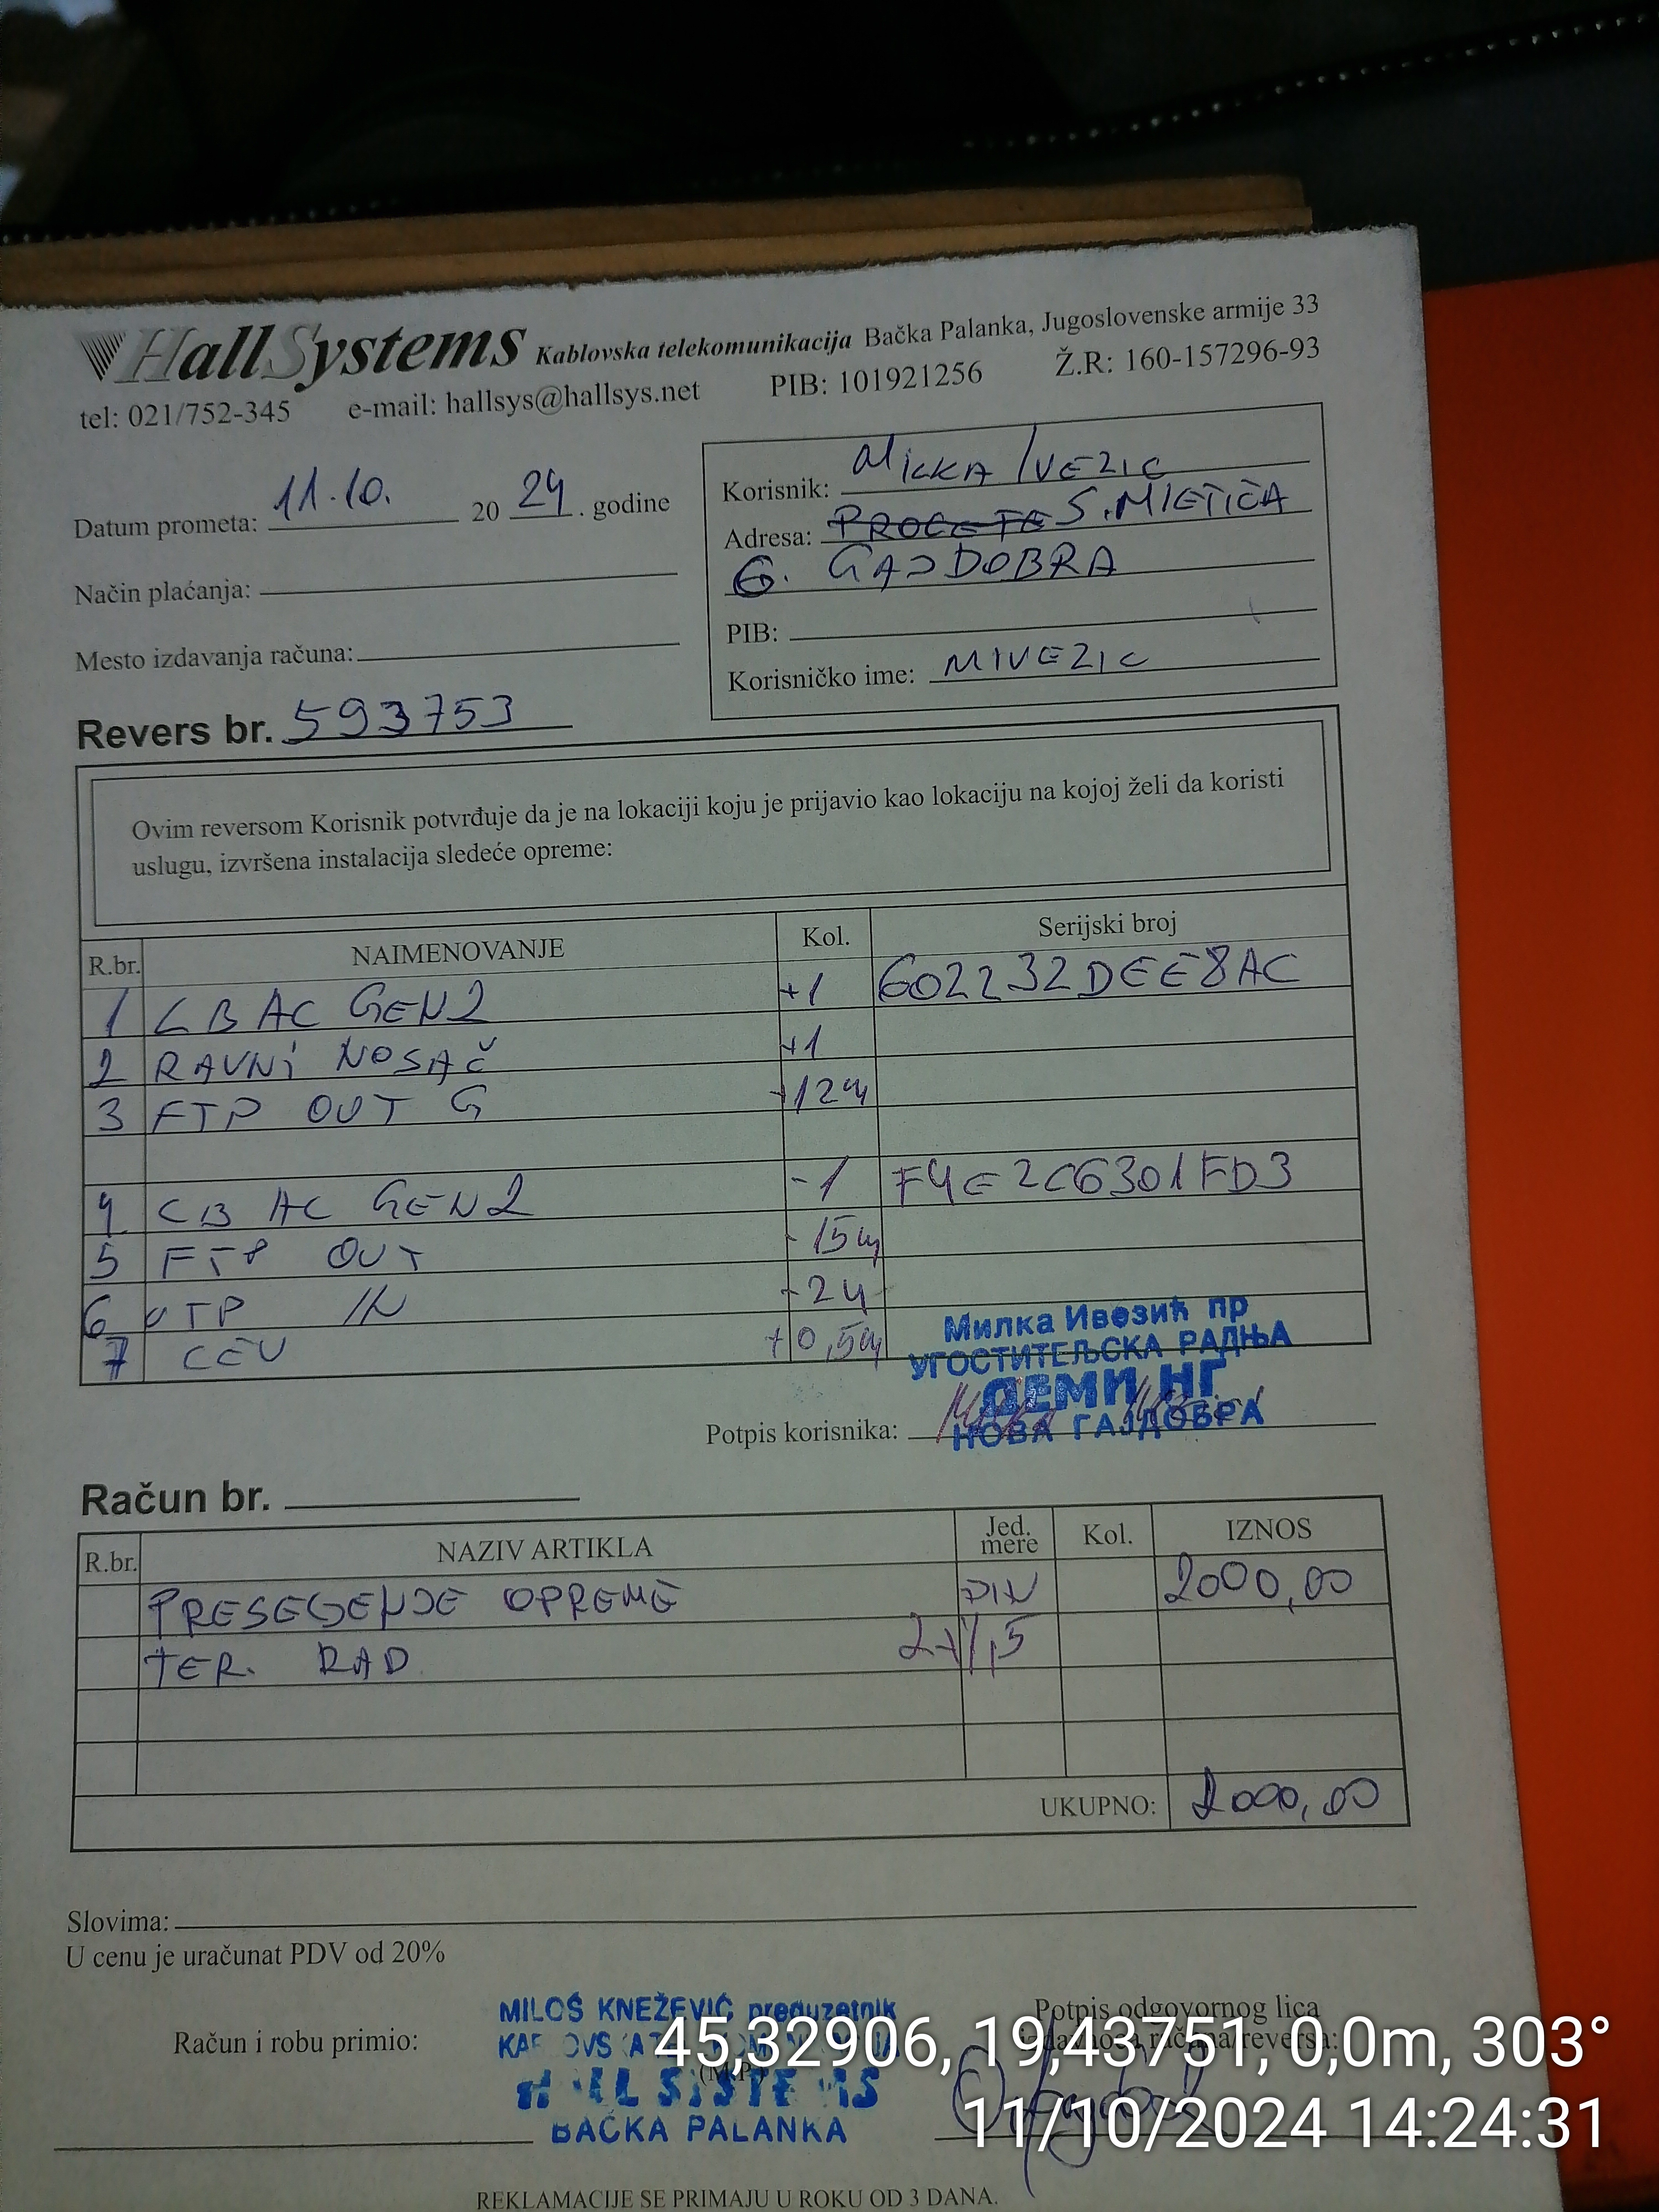 HallSystems Kablovska telekomunikacija Bačka Palanka, Jugoslovenske armije 33
tel: 021/752-345 e-mail: hallsys@hallsys.net PIB: 101921256 Ž.R: 160-157296-93
Datum prometa: 11.10. 20 24. godine
Način plaćanja:
Mesto izdavanja računa:
Korisnik: MILKA IVEZIC
Adresa: S. MIETIĆA
G. GAJDOBRA
PIB:
Korisničko ime: MIVEZIC
Revers br. 593753
Ovim reversom Korisnik potvrđuje da je na lokaciji koju je prijavio kao lokaciju na kojoj želi da koristi
uslugu, izvršena instalacija sledeće opreme:
R.br. NAIMENOVANJE Kol. Serijski broj
1 LB AC GEN2 +1 602232DEE8AC
2 RAVNI NOSAČ +1
3 FTP OUT G +12m
4 LB AC GEN2 -1 F4E2C6301FD3
5 FTP OUT -15m
6 UTP IN
7 CEV +0,5m
Милка Ивезић пр
УГОСТИТЕЉСКА РАДЊА
ДЕМИ НГ
НОВА ГАЈДОБРА
Potpis korisnika:
Račun br.
R.br. NAZIV ARTIKLA Jed. mere Kol. IZNOS
PRESEGENJE OPREME DIN 2000,00
TER. RAD 2x1,5
UKUPNO: 2000,00
Slovima:
U cenu je uračunat PDV od 20%
Račun i robu primio:
MILOŠ KNEŽEVIĆ preduzetnik
HALL SYSTEMS
BAČKA PALANKA
(M.P.)
Potpis odgovornog lica
45,32906, 19,43751, 0,0m, 303°
11/10/2024 14:24:31
REKLAMACIJE SE PRIMAJU U ROKU OD 3 DANA.